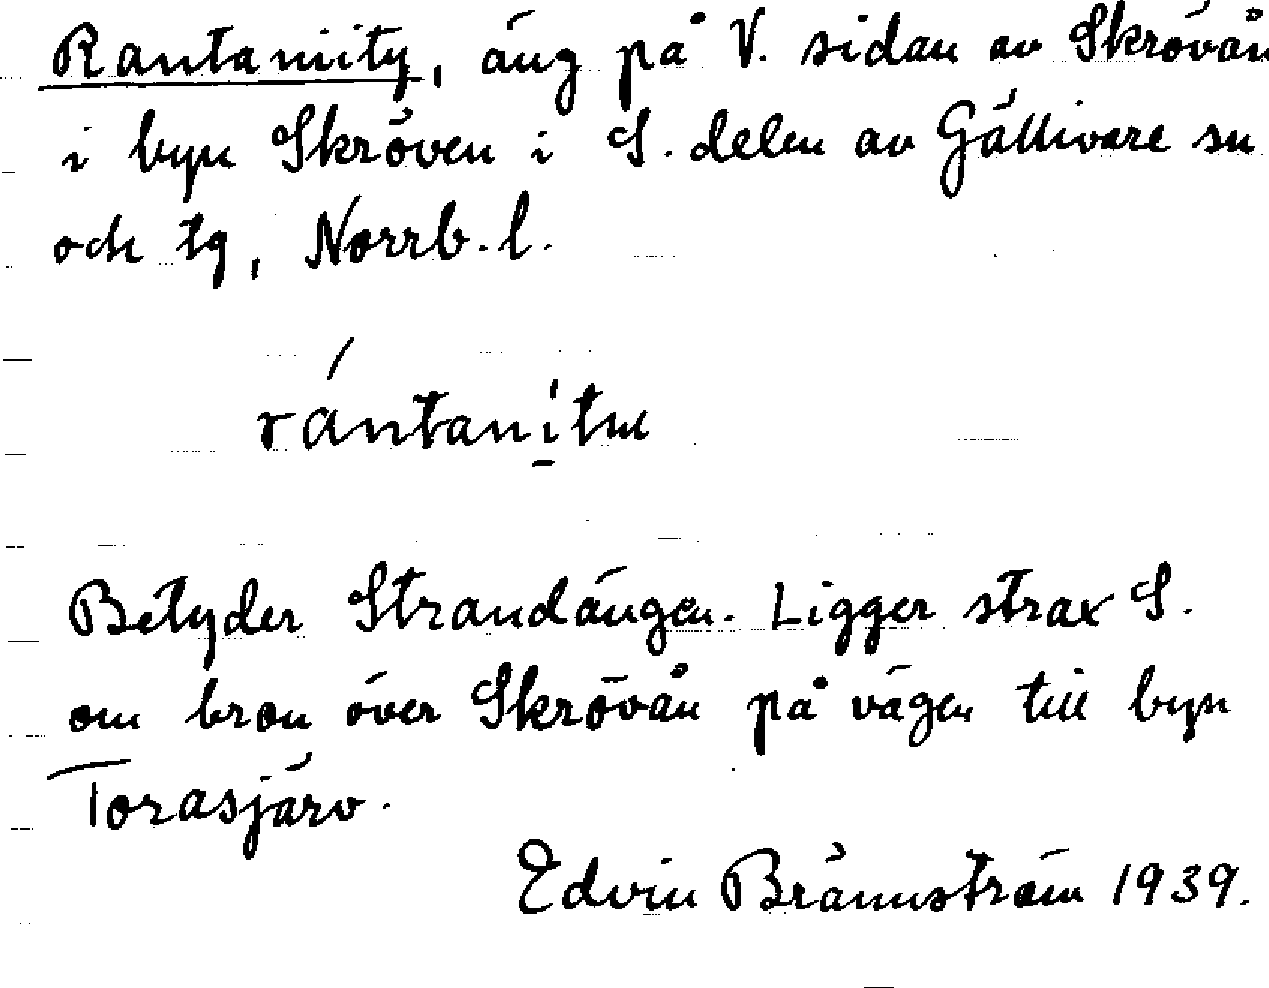 Rantaniity, äng på V. sidan av Skrövån
i byn Skröven i S. delen av Gällivare sn
och tg, Norrb. l.
Betyder Strandängen. Ligger strax S.
om bron över Skrövån på vägen till byn
Torasjärv.
Edvin Brännström 1939.